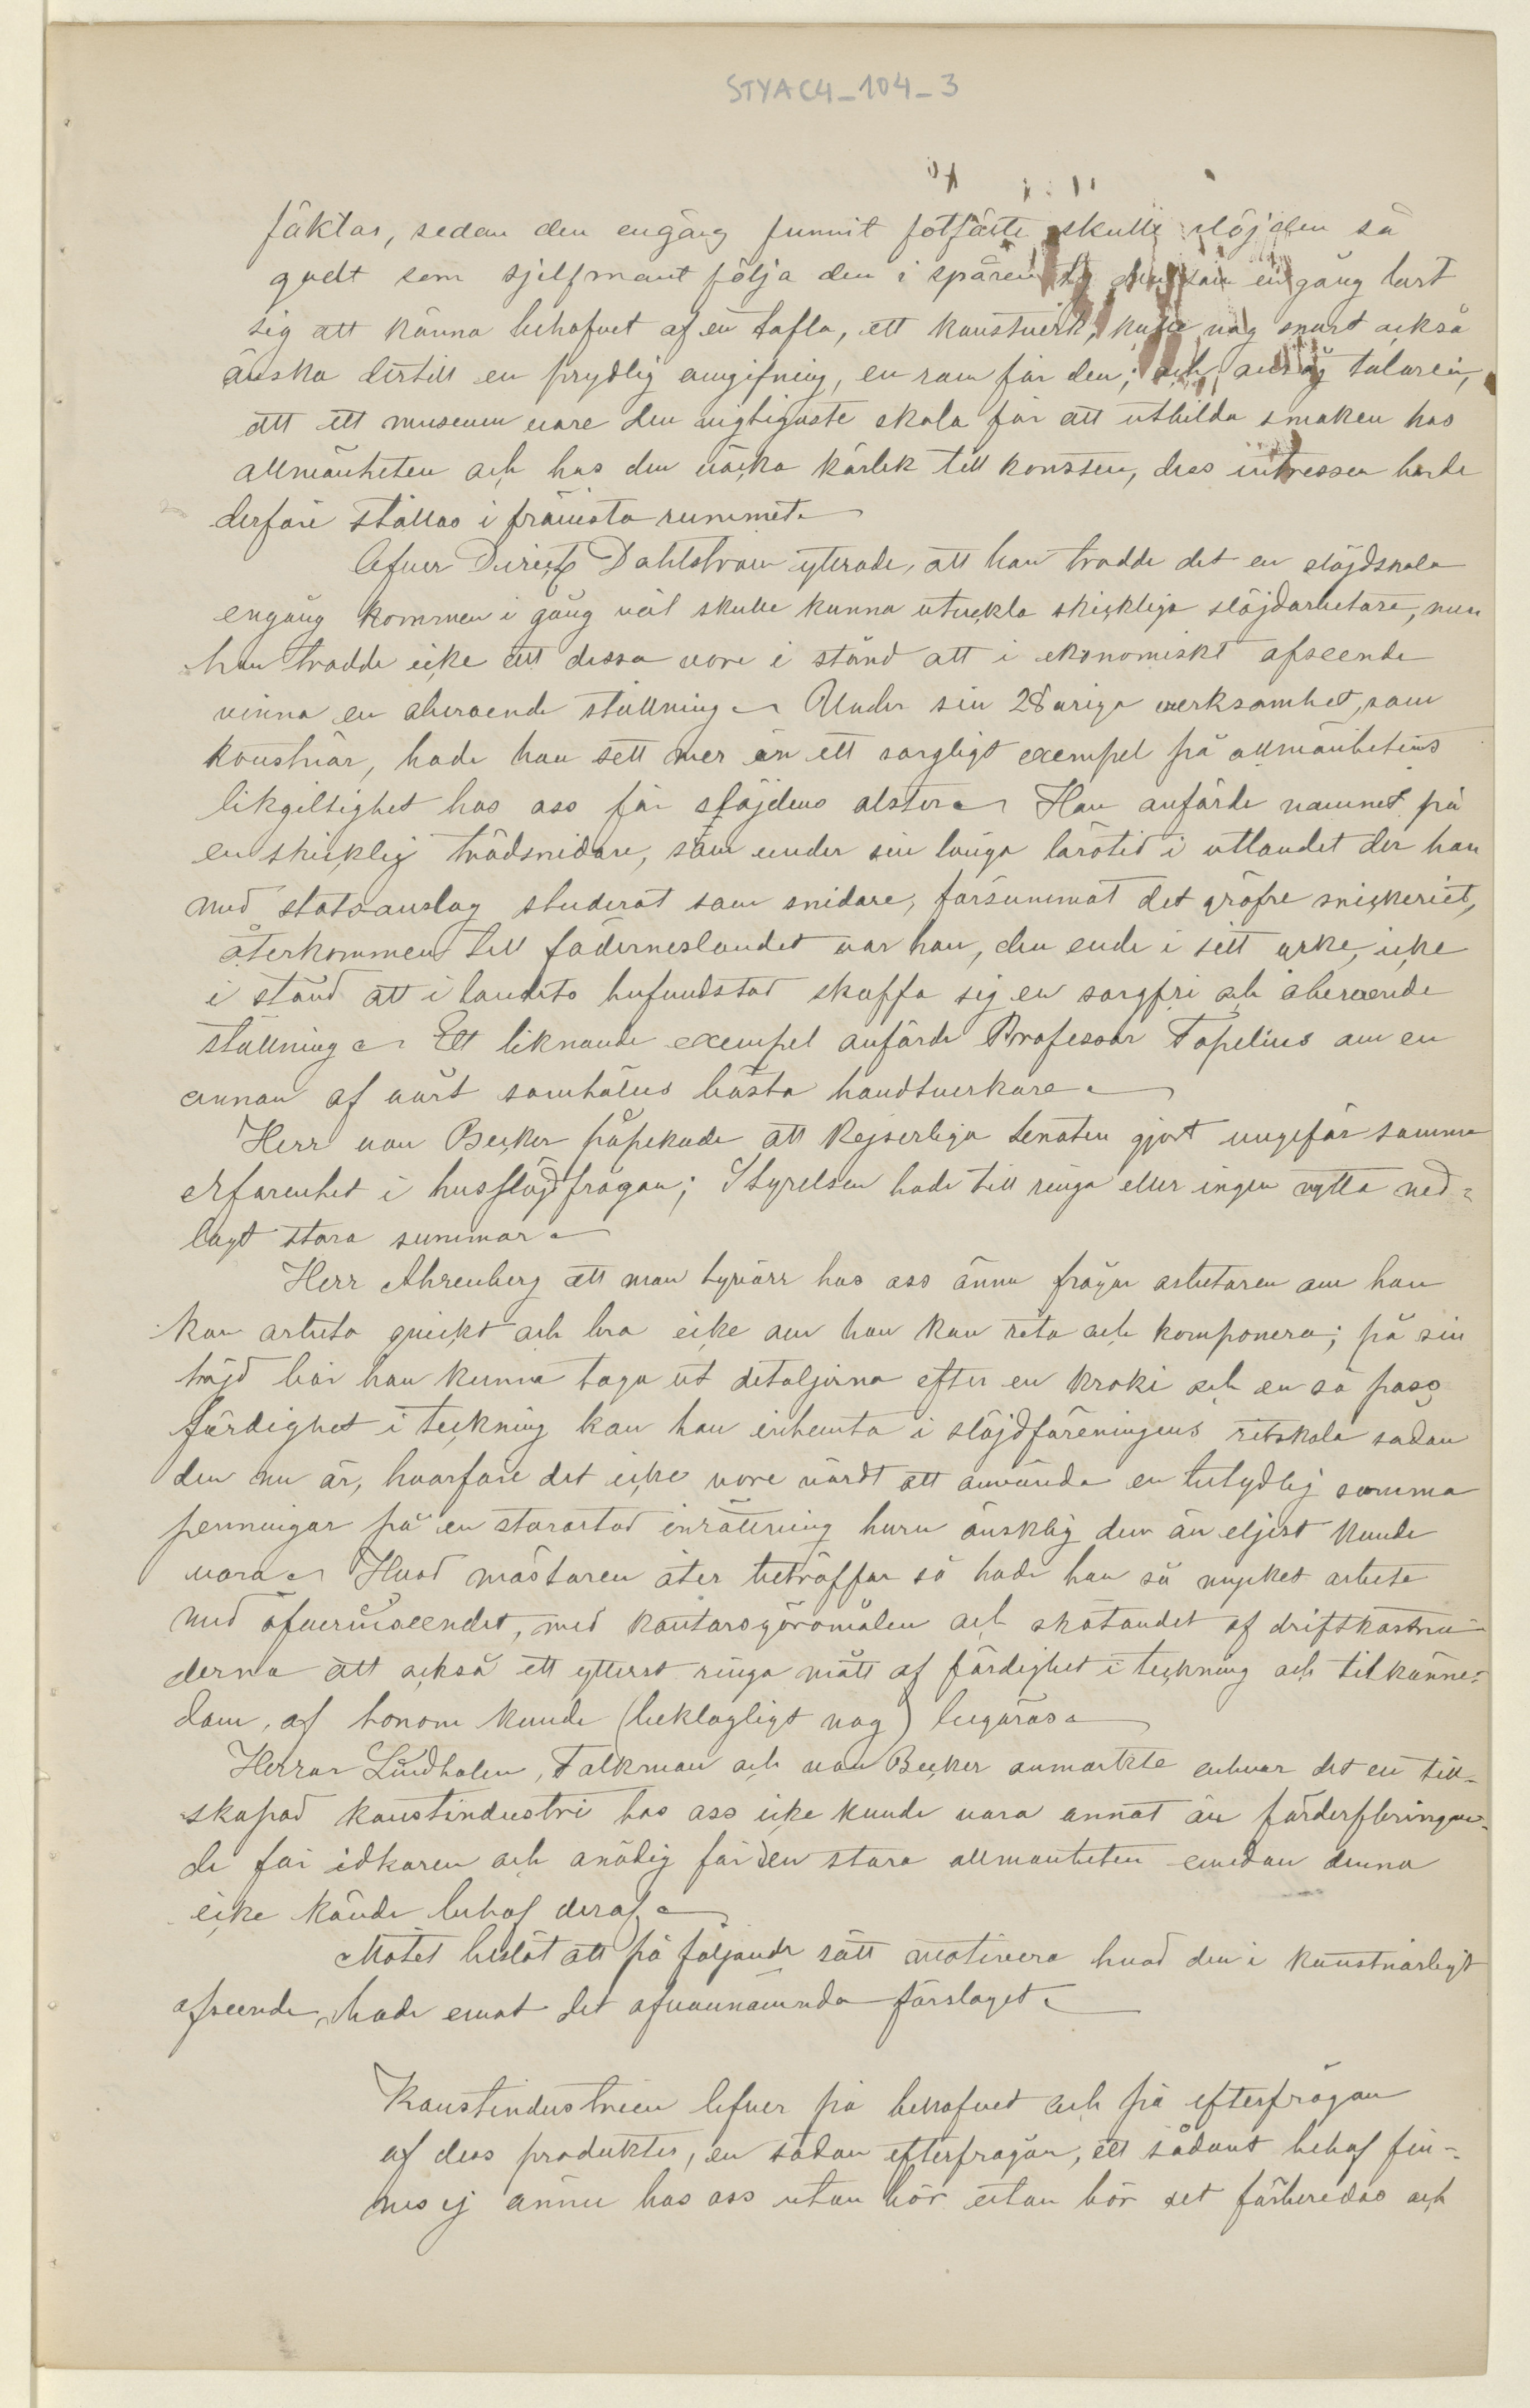 STYAC4_104_3
fäktas, sedan den engång funnit fotfäste skulle slöjden så
godt som sjelfmant följa den i spåren ty den som engång lärt
sig att känna behofvet af en tafla, ett konstverk, kunde nog snart också
önska dertill en prydlig omgifning, en ram för den; och ansåg talaren,
att ett museum vore den vigtigaste skola för att utbilda smaken hos
allmänheten och hos den väcka kärlek till konsten, dess intressen borde
derföre ställas i främsta rummet.
Öfver Direkt Dahlström yttrade, att han trodde det en slöjdskola
engång kommen i gång väl skulle kunna utveckla skickliga slöjdarbetare, men
han trodde icke att dessa vore i stånd att i ekonomiskt afseende
vinna en oberoende ställning. Under sin 28 åriga verksamhet, som
konstnär, hade han sett mer än ett sorgligt exempel på allmänhetens
likgiltighet hos oss för slöjdens alster. Han anförde namnet på
en skicklig trädsnidare, som under sin långa lärotid i utlandet der han
med statsanslag studerat som snidare, försummat det gröfre snickeriet,
återkommen till fäderneslandet var han, den ende i sitt yrke, icke
i stånd att i landets hufvudstad skaffa sig en sorgfri och oberoende
ställning. Ett liknande exempel anförde Professor Topelius om en
annan af vårt samhälles bästa handtverkare.
Herr von Becker påpekade att Kejserliga Senaten gjort ungefär samma
erfarenhet i husslöjdfrågan; Styrelsen hade till ringa eller ingen nytta ned-
lagt stora summor.
Herr Ahrenberg att man tyvärr hos oss ännu frågar arbetaren om han
kan arbeta qvickt och bra icke om han kan rita och komponera; på sin
höjd bör han kunna taga ut detaljerna efter en kroki och en så pass
färdighet i teckning kan han inhemta i slöjdföreningens ritskola sådan
den nu är, hvarföre det icke vore värdt att använda en betydlig summa
penningar på en storartad inrättning huru önsklig den än eljest kunde
vara. Hvad mästaren åter beträffar så hade han så mycket arbete
med öfverinseendet, med kontorsgöromålen och skötandet af driftkostna-
derna att också ett ytterst ringa mått af färdighet i teckning och tilkänne-
dom, af honom kunde (beklagligt nog) begäras.
Herrar Lindholm, Falkman och von Becker anmärkte enhvar det en till-
skapad konstindustri hos oss icke kunde vara annat än förderfbringan-
de för idkaren och onödig för den stora allmänheten emedan denna
icke kände behof deraf.
Mötet beslöt att på följande sätt motivera hvad den i konstnärligt
afseende, hade emot det ofvannämnda förslaget.
Konstindustrien lefver på behofvet och på efterfrågan
af dess produkter, en sådan efterfrågan, ett sådant behof fin-
nes ej ännu hos oss utan bör utan bör det förberedas och